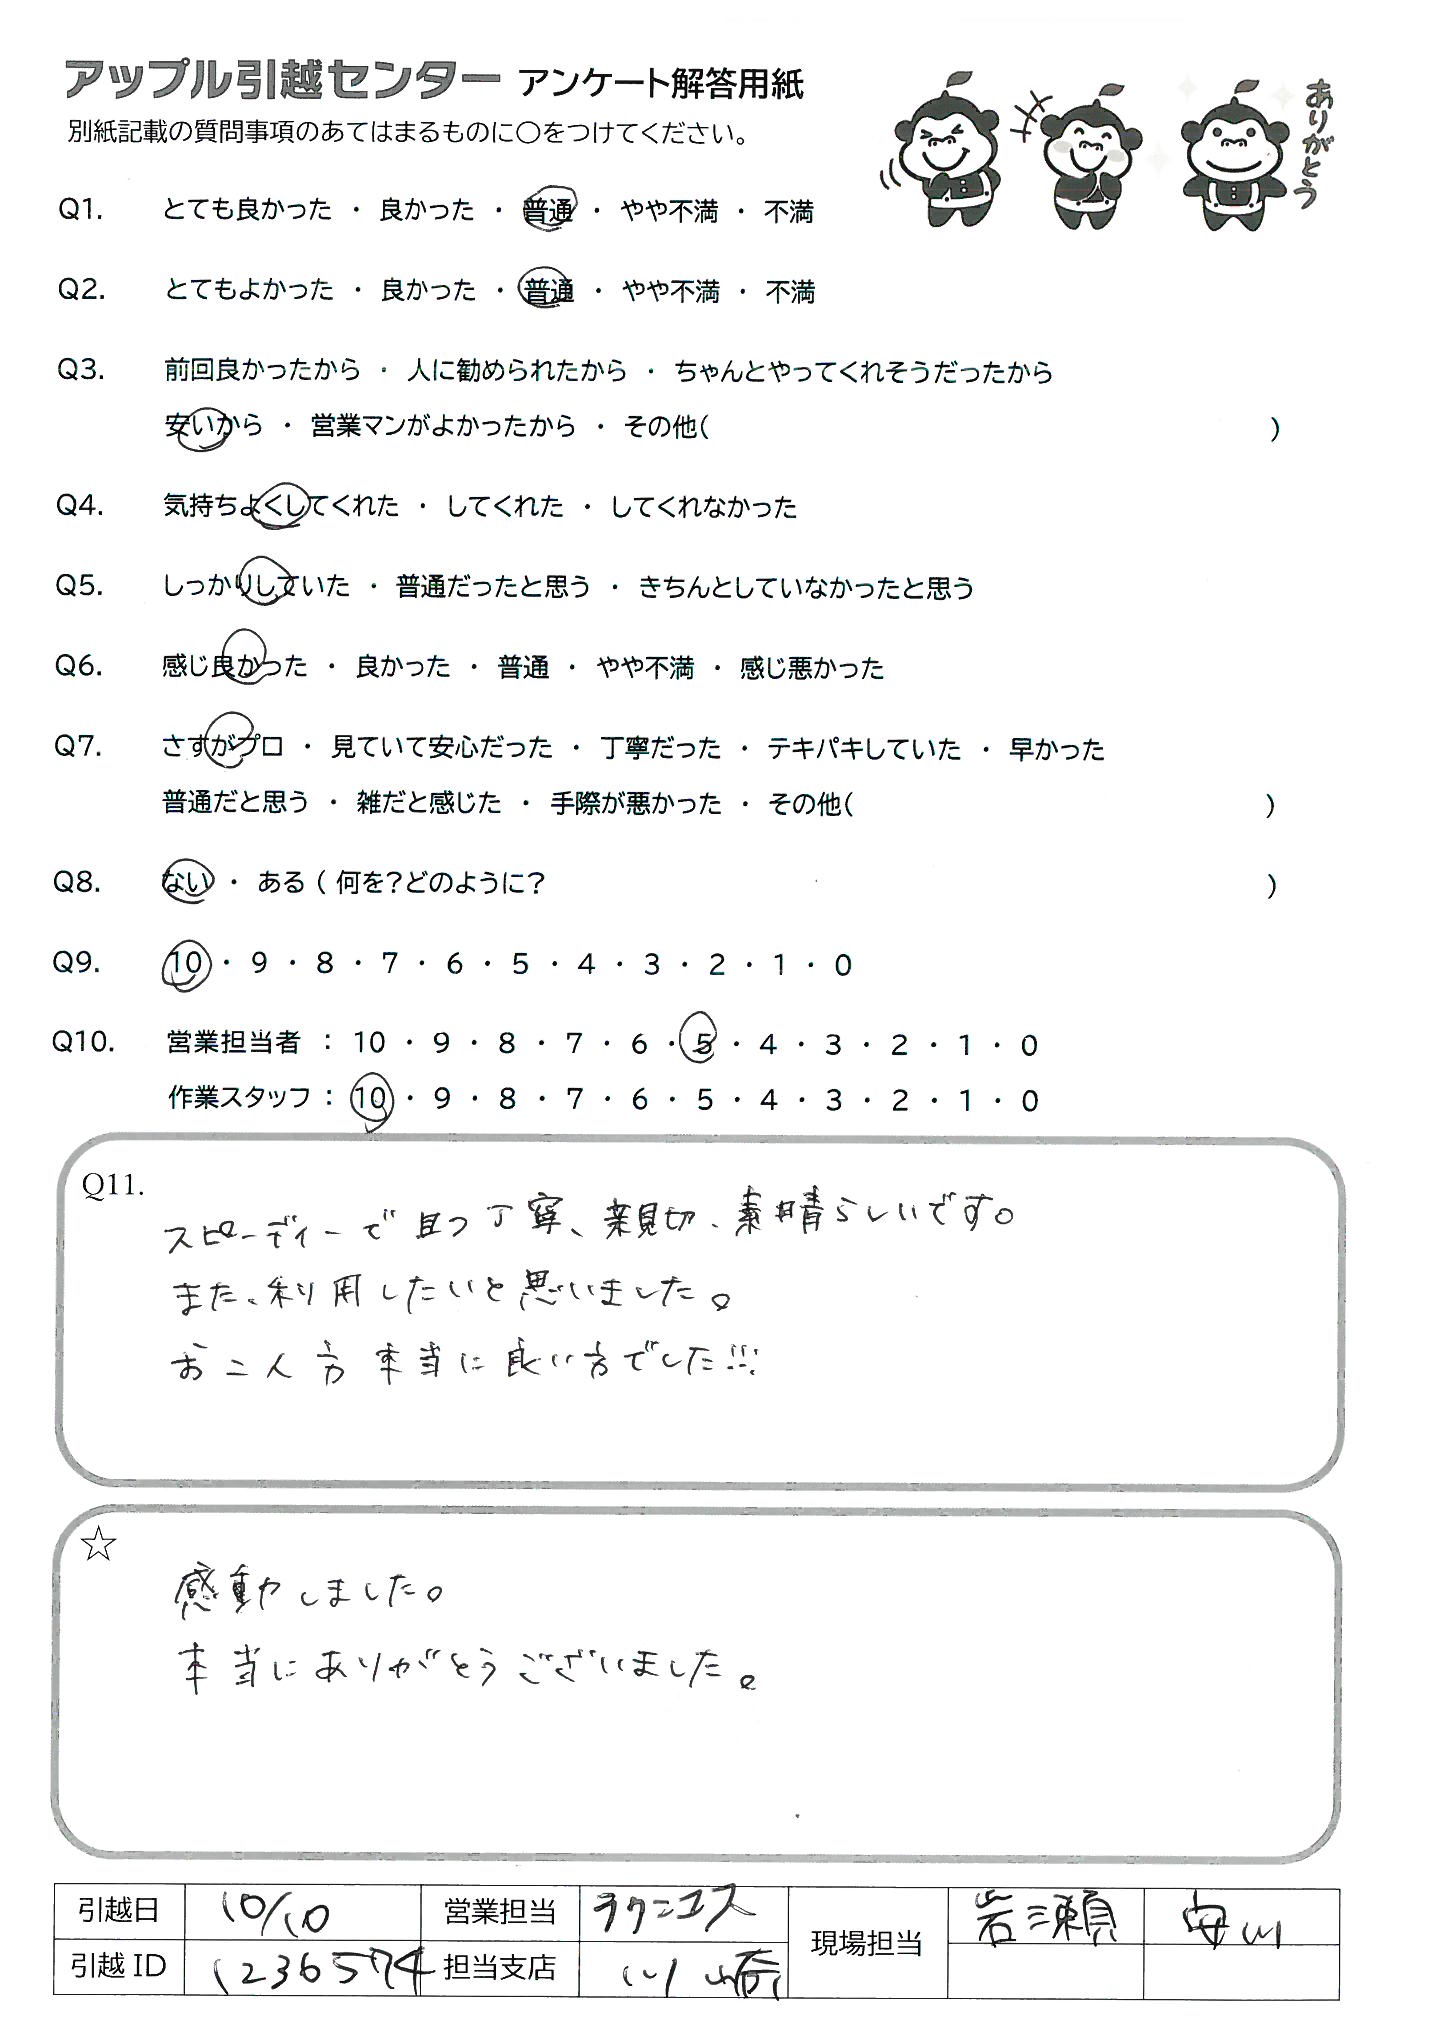 アップル引越センター アンケート解答用紙
別紙記載の質問事項のあてはまるものに〇をつけてください。
ありがとう
Q1. とても良かった ・ 良かった ・ 普通 ・ やや不満 ・ 不満
Q2. とてもよかった ・ 良かった ・ 普通 ・ やや不満 ・ 不満
Q3. 前回良かったから ・ 人に勧められたから ・ ちゃんとやってくれそうだったから
安いから ・ 営業マンがよかったから ・ その他( )
Q4. 気持ちよくしてくれた ・ してくれた ・ してくれなかった
Q5. しっかりしていた ・ 普通だったと思う ・ きちんとしていなかったと思う
Q6. 感じ良かった ・ 良かった ・ 普通 ・ やや不満 ・ 感じ悪かった
Q7. さすがプロ ・ 見ていて安心だった ・ 丁寧だった ・ テキパキしていた ・ 早かった
普通だと思う ・ 雑だと感じた ・ 手際が悪かった ・ その他( )
Q8. ない ・ ある ( 何を?どのように? )
Q9. 10 ・ 9 ・ 8 ・ 7 ・ 6 ・ 5 ・ 4 ・ 3 ・ 2 ・ 1 ・ 0
Q10. 営業担当者 : 10 ・ 9 ・ 8 ・ 7 ・ 6 ・ 5 ・ 4 ・ 3 ・ 2 ・ 1 ・ 0
作業スタッフ : 10 ・ 9 ・ 8 ・ 7 ・ 6 ・ 5 ・ 4 ・ 3 ・ 2 ・ 1 ・ 0
Q11.
スピーディーで且つ丁寧、親切、素晴らしいです。
また、利用したいと思いました。
お二人方本当に良い方でした!!!
☆
感動しました。
本当にありがとうございました。
引越日 10/10 営業担当 ラクニコス 現場担当 岩瀬 安川
引越ID 1236574 担当支店 川崎